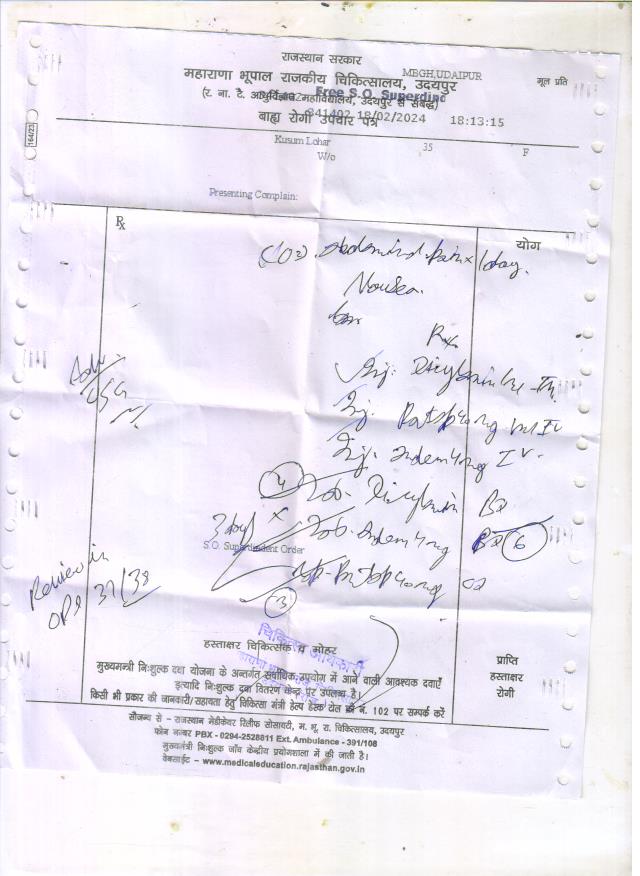 राजस्थान सरकार
MBGH,UDAIPUR
महाराणा भूपाल राजकीय चिकित्सालय, उदयपुर
मूल प्रति
(र. ना. टै. आयुर्विज्ञान महाविद्यालय, उदयपुर से संबद्ध)
Free S.O. Superdind
बाह्य रोगी उपचार पत्र
341402 18/02/2024 18:13:15
164/23
Kusum Lohar 35 F
W/o
Presenting Complain:
Rx
योग
C/o abdominal pain x 1day.
Nausea.
Rx
Adv
USG
Inj. Dicyclomine IM.
Inj. Pantop 40mg IV
Inj. Ondem 4mg IV.
4 Tab. Dicyclomin BD
3 day x Tab. Ondem 4mg BD 6
S.O. Superdindent Order
Tab. Pantop 40mg OD
3
Review in
OPD 37/38
हस्ताक्षर चिकित्सक व मोहर
चिकित्सा अधिकारी
मुख्यमन्त्री निःशुल्क दवा योजना के अन्तर्गत सर्वाधिक उपयोग में आने वाली आवश्यक दवाएँ
इत्यादि निःशुल्क दवा वितरण केन्द्र पर उपलब्ध है।
किसी भी प्रकार की जानकारी/सहायता हेतु चिकित्सा मंत्री हेल्प डेस्क सेल के नं. 102 पर सम्पर्क करें
प्राप्ति
हस्ताक्षर
रोगी
सौजन्य से - राजस्थान मेडीकेयर रिलीफ सोसायटी, म. भू. रा. चिकित्सालय, उदयपुर
फोन नम्बर PBX - 0294-2528811 Ext. Ambulance - 391/108
मुख्यमंत्री निःशुल्क जाँच केन्द्रीय प्रयोगशाला में की जाती है।
वेबसाईट - www.medicaleducation.rajasthan.gov.in